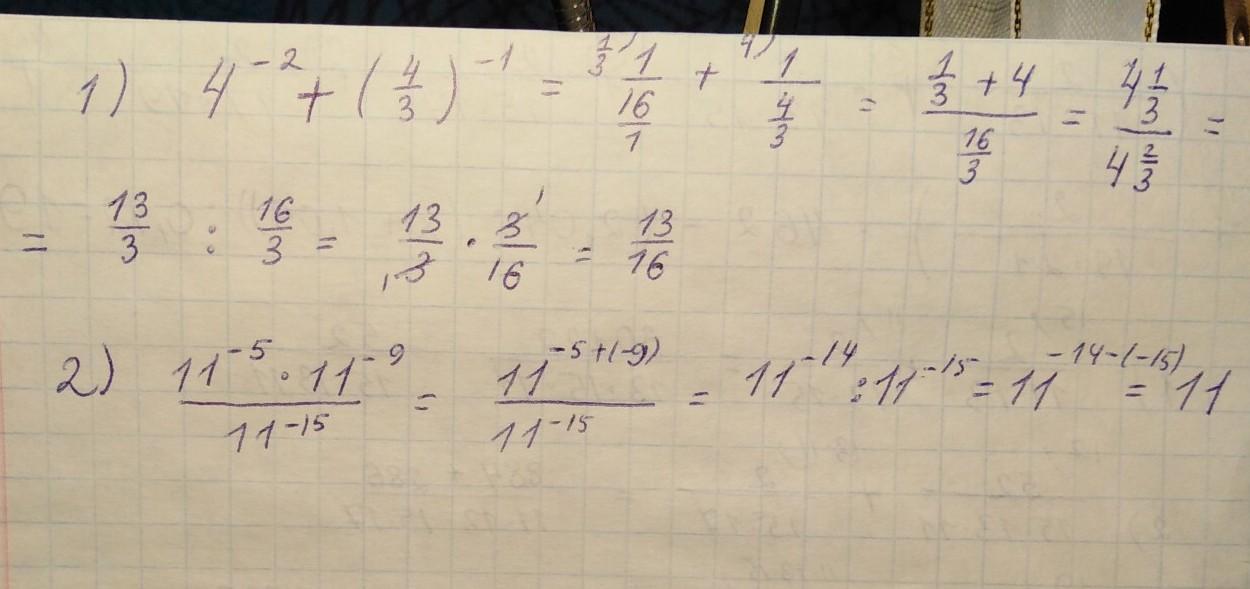 1) 4^{-2} + (4/3)^{-1} = ^{1/3)} 1/(16/1) + ^{4)} 1/(4/3) = (1/3 + 4)/(16/3) = (4 1/3)/(4 2/3) =
= 13/3 : 16/3 = 13/3 · 3/16 = 13/16
2) (11^{-5} · 11^{-9})/11^{-15} = 11^{-5+(-9)}/11^{-15} = 11^{-14} : 11^{-15} = 11^{-14-(-15)} = 11